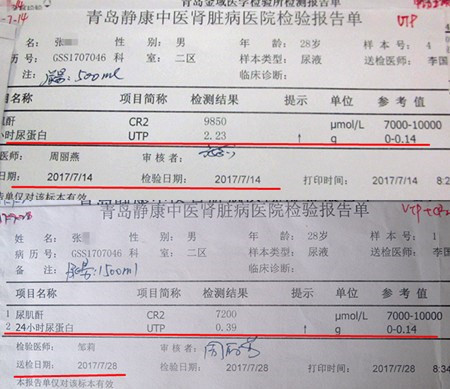 青岛金域医学检验所检测报告单
-7-14
青岛静康中医肾脏病医院检验报告单 UTP
名: 张 性 别: 男 年 龄: 28岁 样 本 号: 4
历 号: GSS1707046 科 室: 二区 样本类型: 尿液 送检医师: 李国
注: 尿量:500ml 临床诊断:
目名称 项目简称 检测结果 提示 单位 参 考 值
肌酐 CR2 9850 μmol/L 7000-10000
小时尿蛋白 UTP 2.23 ↑ g 0-0.14
医师: 周丽燕 审 核 者:
日期: 2017/7/14 检验日期: 2017/7/14 打印时间: 2017/7/14 8:2
告单仅对该标本有效
青岛静康中医肾脏病医院检验报告单
姓 名: 张 性 别: 男 年 龄: 28岁 样 本 号: 1
病 历 号: GSS1707046 科 室: 二区 样本类型: 尿液 送检医师: 李国
备 注: 尿量:1500ml 临床诊断:
项目名称 项目简称 检测结果 提示 单位 参 考 值
1 尿肌酐 CR2 7200 μmol/L 7000-10000
2 24小时尿蛋白 UTP 0.39 ↑ g 0-0.14
检验医师: 邹莉 审 核 者:
送检日期: 2017/7/28 检验日期: 2017/7/28 打印时间: 2017/7/28 8:34
本报告单仅对该标本有效